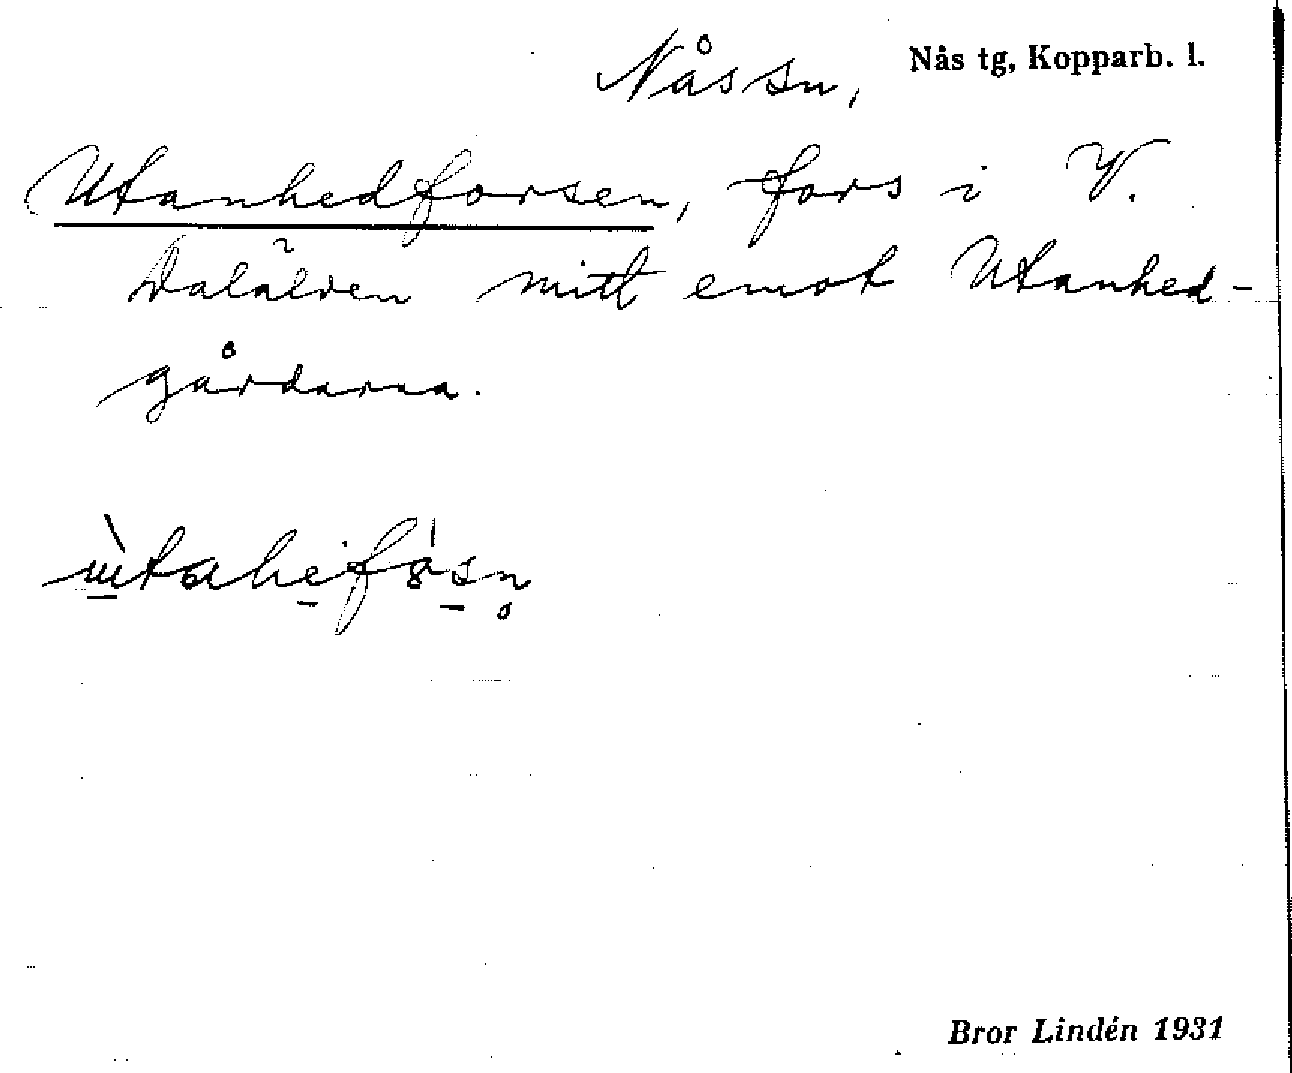 Nås sn, Nås tg, Kopparb. l.
Utanhedforsen, fors i V.
Dalälven mitt emot Utanhed-
gårdarna.
Bror Lindén 1931